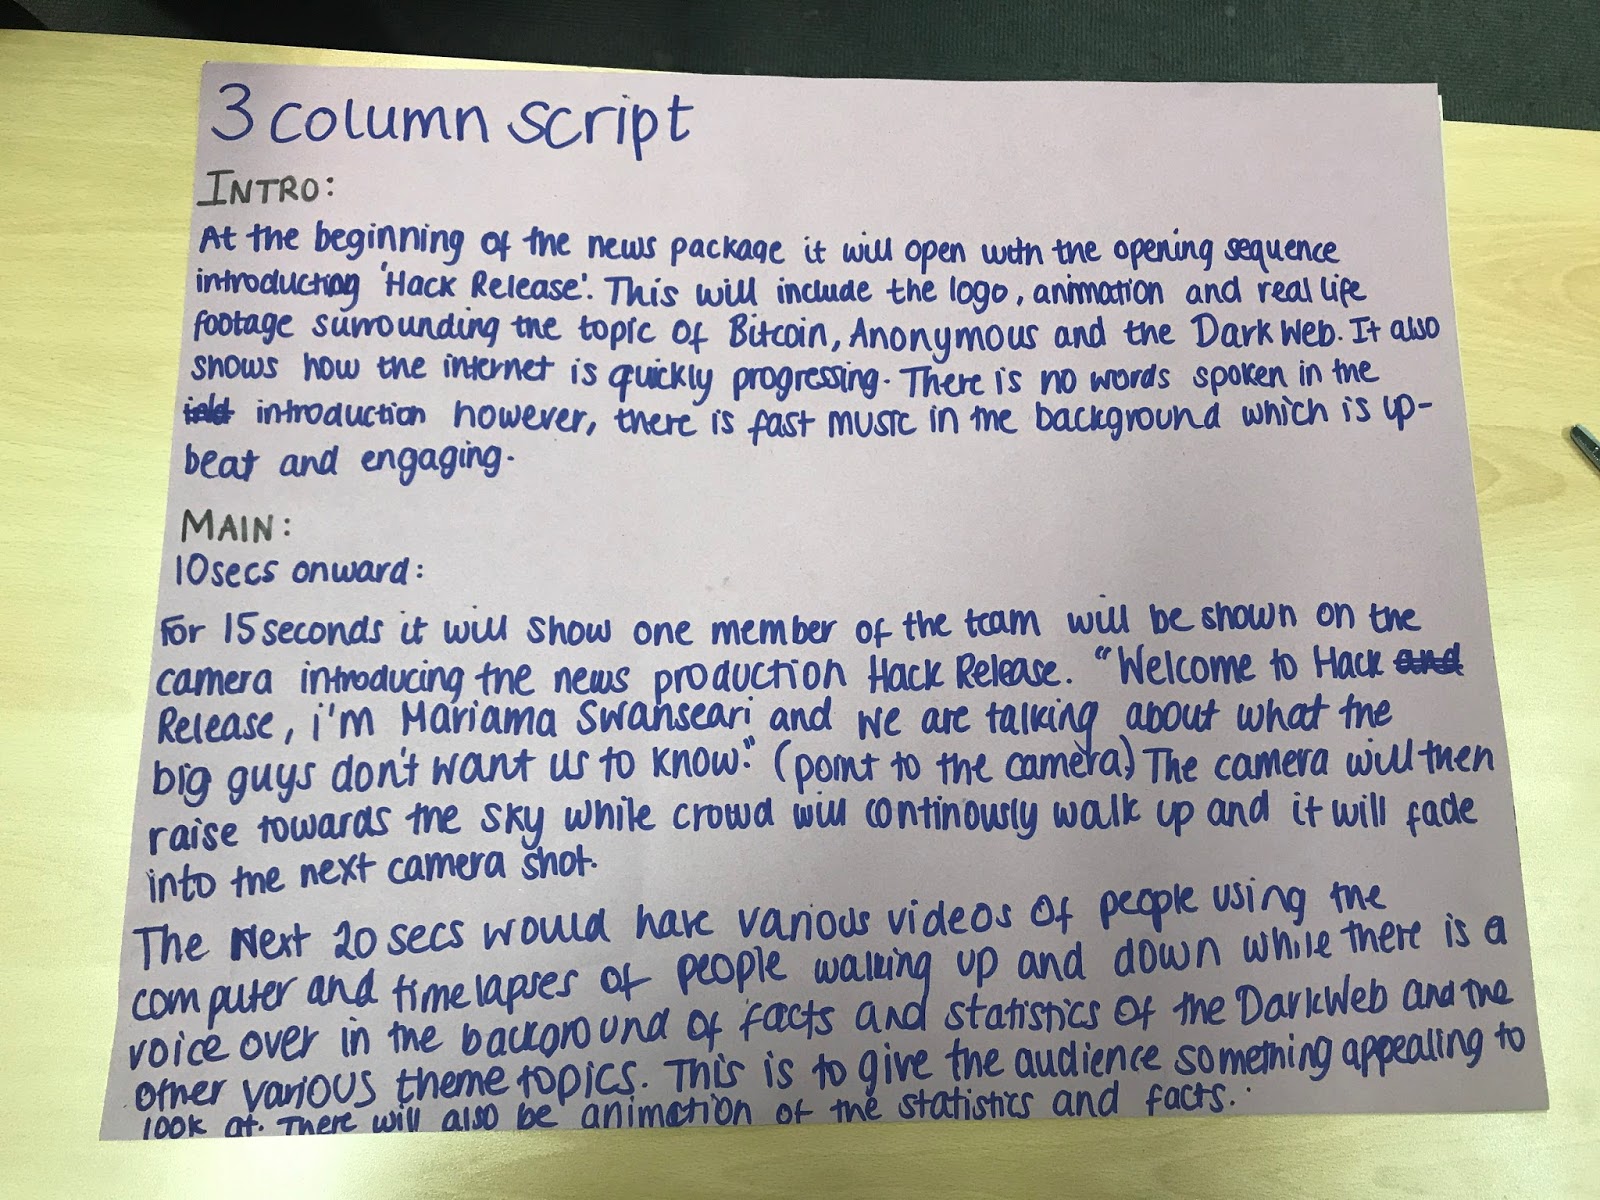 3 column script
INTRO:
At the beginning of the news package it will open with the opening sequence
introducting 'Hack Release'. This will include the logo, animation and real life
footage surrounding the topic of Bitcoin, Anonymous and the Dark Web. It also
shows how the internet is quickly progressing. There is no words spoken in the
introduction however, there is fast music in the background which is up-
beat and engaging.
MAIN:
10secs onward:
For 15 seconds it will show one member of the team will be shown on the
camera introducing the news production Hack Release. "Welcome to Hack and
Release, i'm Mariama Swanseari and we are talking about what the
big guys don't want us to know." (point to the camera) The camera will then
raise towards the sky while crowd will continously walk up and it will fade
into the next camera shot.
The Next 20 secs would have various videos of people using the
computer and timelapses of people walking up and down while there is a
voice over in the background of facts and statistics of the Dark Web and the
other various theme topics. This is to give the audience something appealing to
look at. There will also be animation of the statistics and facts.